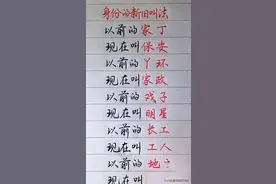 身份的新旧叫法
以前的家丁
现在叫保安
以前的丫环
现在叫家政
以前的戏子
现在叫明星
以前的长工
现在叫工人
以前的地
现在叫